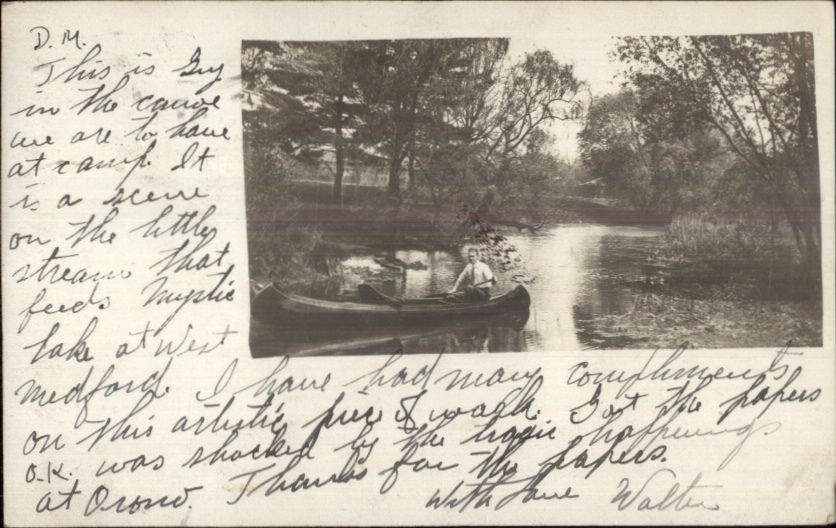 D. M.
This is Guy
in the canoe
we are to have
at camp. It
is a scene
on the little
stream that
feeds Mystic
lake at West
Medford. I have had many compliments
on this artistic piece of work. Got the papers
O.K. was shocked by the tragic happenings
at Orono. Thanks for the papers.
With love Walter